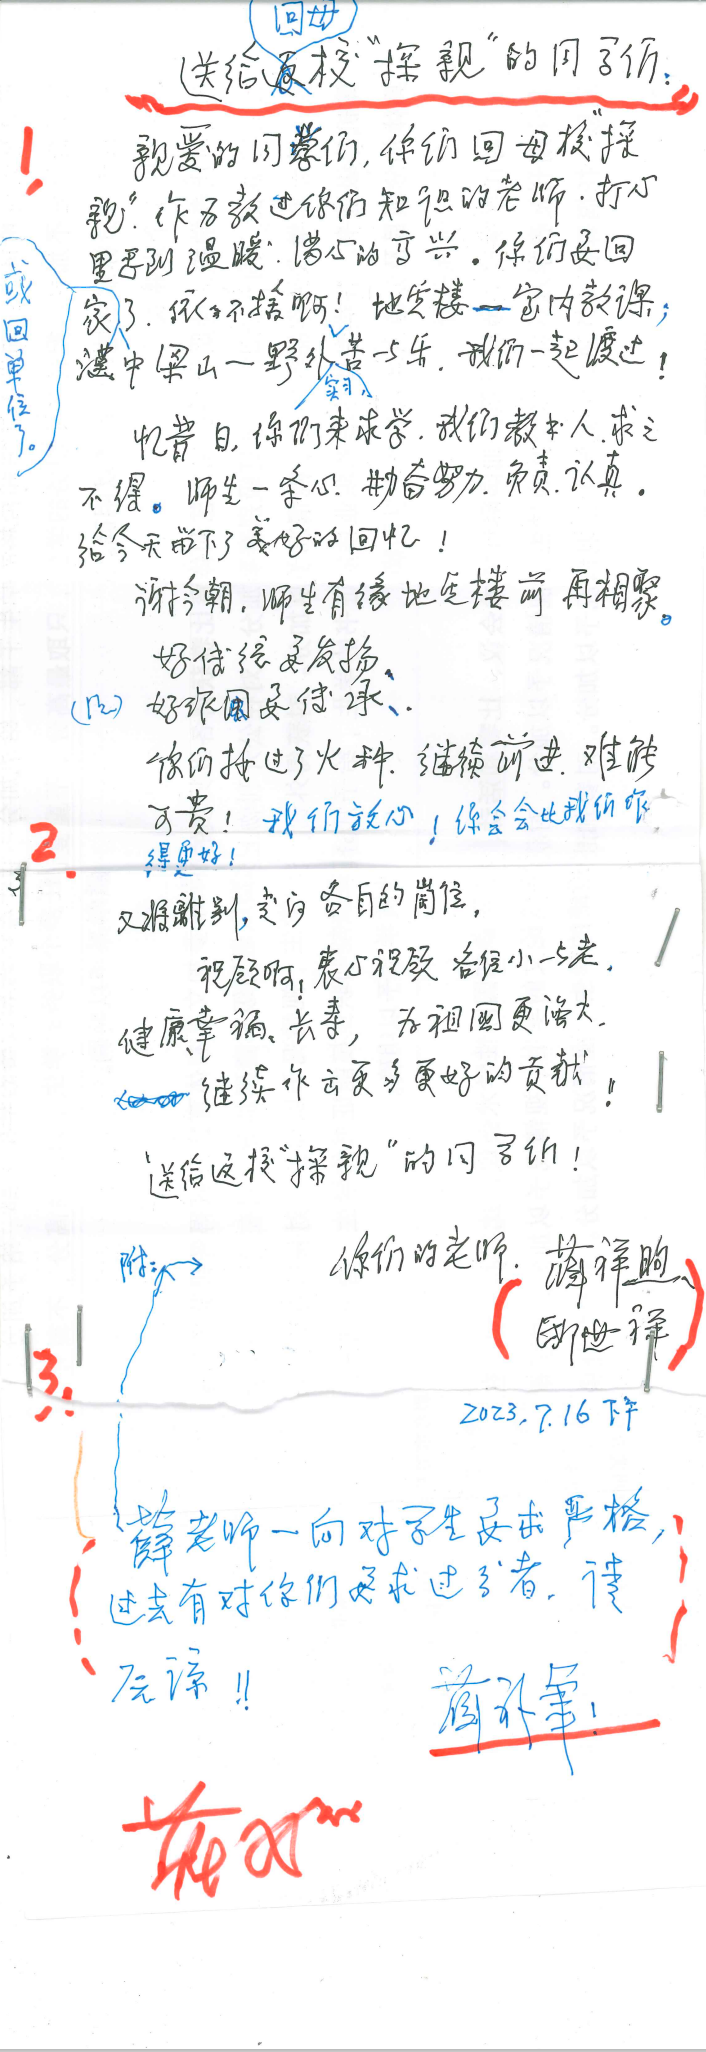 回母
送给返校“探亲”的同学们:
1.
亲爱的同学们,你们回母校“探
亲”.作为教过你们知识的老师.打心
里感到温暖.满心的高兴。你们要回
家了.依依不捨啊!地质楼—室内教课;
漢中梁山—野外苦与乐.我们一起渡过!
实习、
或回单位了。
忆昔日.你们来求学.我们教书人.求之
不得。师生一条心.勤奋努力.负责.认真。
给今天留下了美好的回忆!
谢今朝.师生有缘地质楼前再相聚。
好传统要发扬、
好作风要传承、.
你们接过了火种.继续前进.难能
可贵!我们放心!你会会比我们做
得更好!
2.
又将離别,走向各自的崗位,
祝愿啊!衷心祝愿各位小与老.
健康、幸福、长寿,为祖国更强大.
继续作出更多更好的贡献!
送给返校“探亲”的同学们!
附:
你们的老师.薛祥煦
(邸世祥)
3.
2023.7.16下午
薛老师一向对学生要求严格,
过去有对你们要求过分者.请
原谅!!